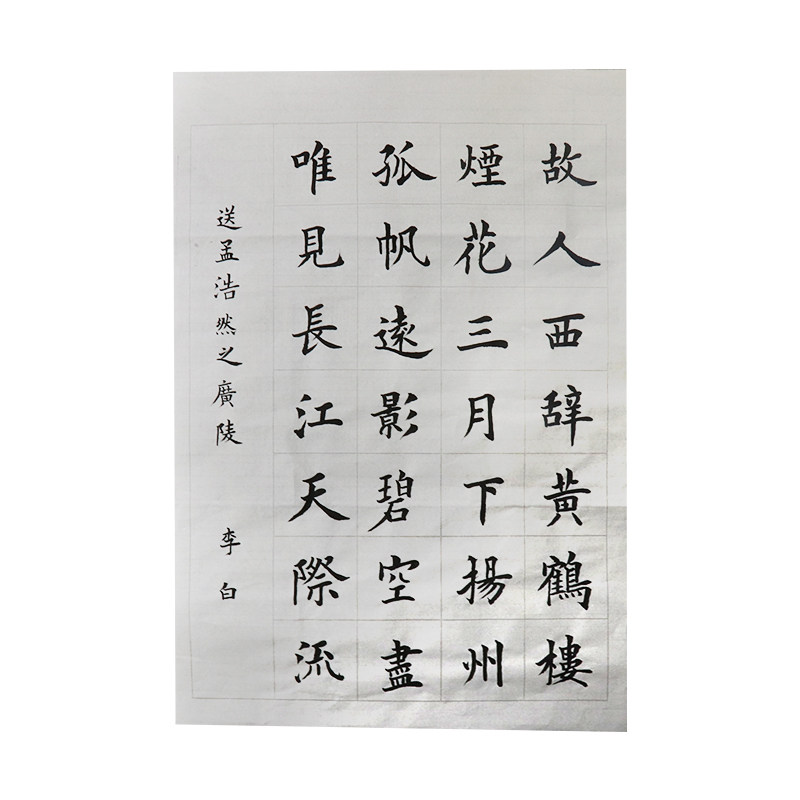 故人西辞黃鶴樓
煙花三月下揚州
孤帆遠影碧空盡
唯見長江天際流
送孟浩然之廣陵 李白